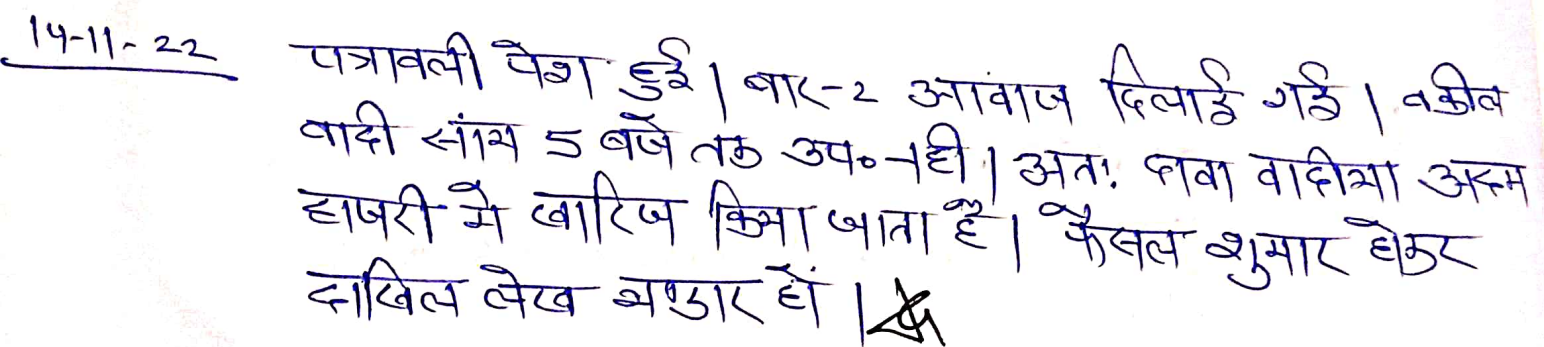 14-11-22 पत्रावली पेश हुई। बार-2 आवाज दिलाई गई। वकील
वादी सांय 5 बजे तक उप० नही। अतः दावा वादीया अदम
हाजरी मे खारिज किया जाता है। फैसल शुमार होकर
दाखिल लेख भण्डार हों।